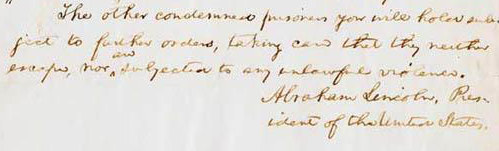 The other condemned prisoners you will hold sub-
ject to further orders, taking care that they neither
escape, nor are subjected to any unlawful violence.
Abraham Lincoln, Pres-
ident of the United States.